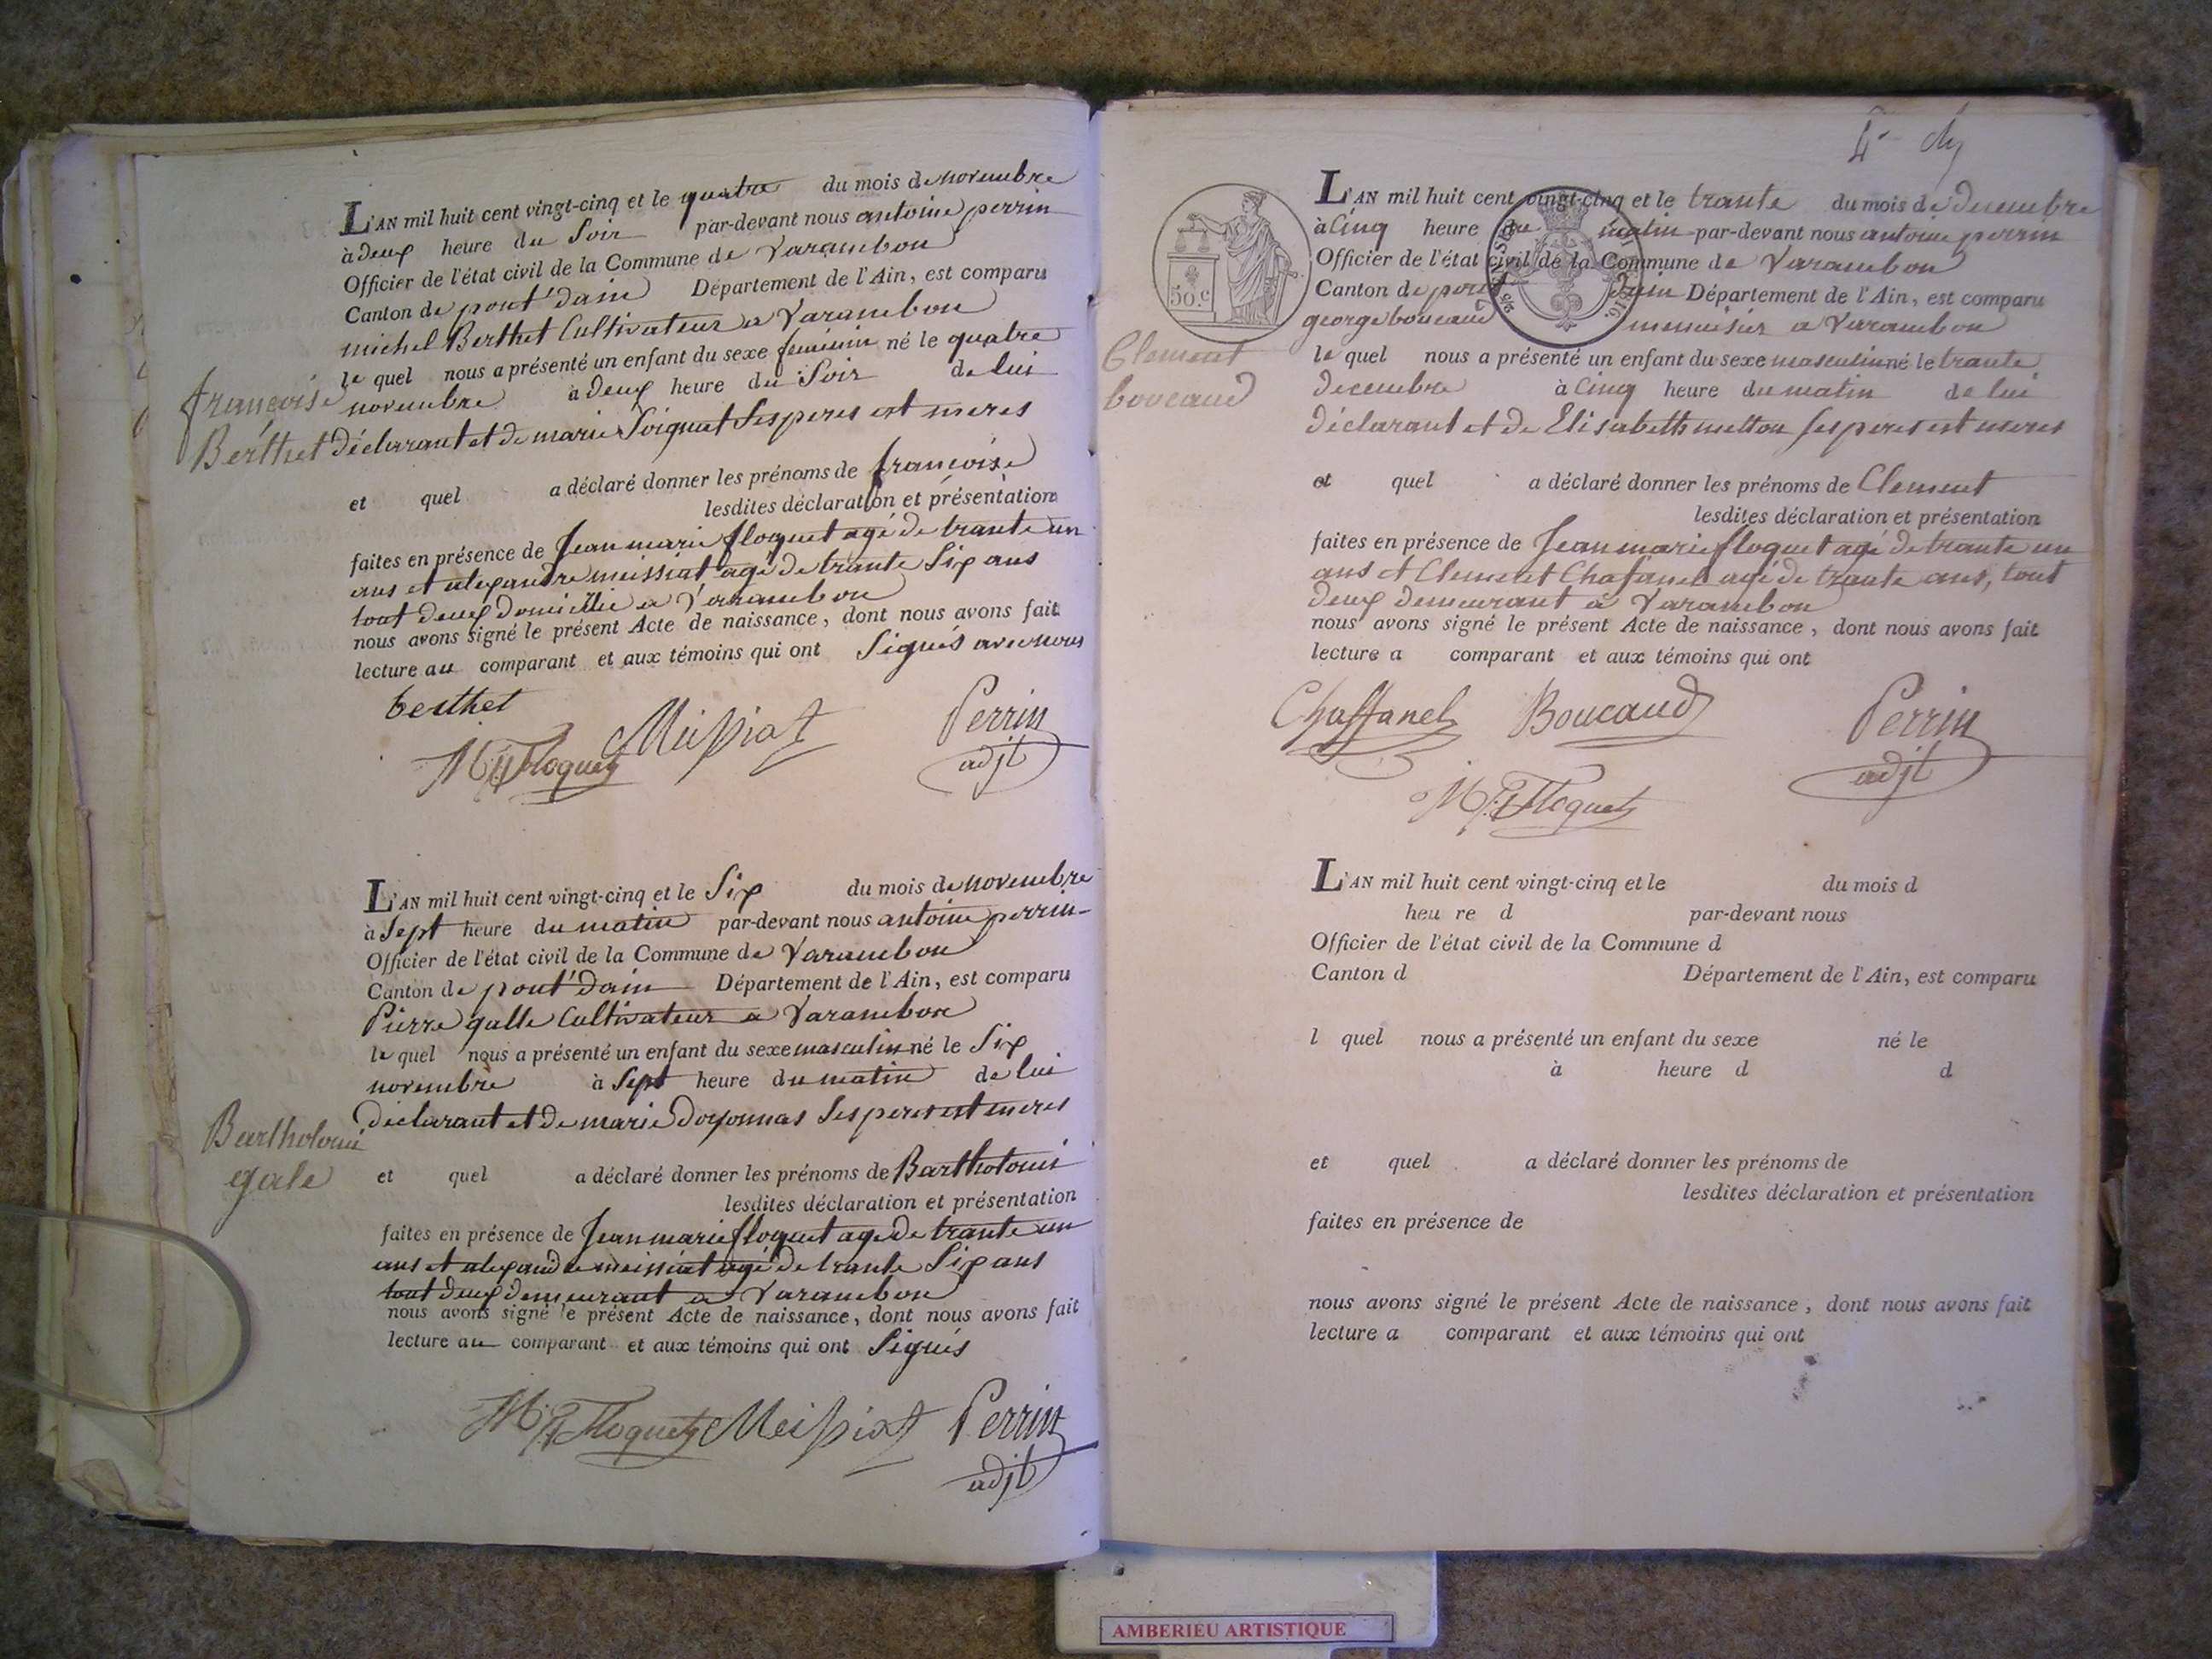 L'AN mil huit cent vingt-cinq et le quatre du mois de novembre
à deux heure du Soir par-devant nous antoine perrin
Officier de l'état civil de la Commune de Varambon
Canton de pont d'ain Département de l'Ain, est comparu
michel Berthet Cultivateur a Varambon
le quel nous a présenté un enfant du sexe feminin né le quatre
novembre à deux heure du Soir de lui
françoise
Berthet
déclarant et de marie Soignat Ses peres est meres
et quel a déclaré donner les prénoms de françoise
lesdites déclaration et présentation
faites en présence de Jean marie floquet agé de trante un
ans et alexandre meissiat agé de trante Six ans
tout deux domicillie a Varambon
nous avons signé le présent Acte de naissance, dont nous avons fait
lecture au comparant et aux témoins qui ont Signés avec nous
berthet
Meissiat
Perrin
adjt
Floquet
L'AN mil huit cent vingt-cinq et le Six du mois de novembre
à Sept heure du matin par-devant nous antoine perrin
Officier de l'état civil de la Commune de Varambon
Canton de pont d'ain Département de l'Ain, est comparu
Pierre galle Cultivateur a Varambon
le quel nous a présenté un enfant du sexe masculin né le Six
novembre à Sept heure du matin de lui
déclarant et de marie doyonnas Ses peres est meres
Bartholomi
gale
et quel a déclaré donner les prénoms de Bartholomi
lesdites déclaration et présentation
faites en présence de Jean marie floquet agé de trante un
ans et alexandre meissiat agé de trante Six ans
tout deux demeurant a Varambon
nous avons signé le présent Acte de naissance, dont nous avons fait
lecture au comparant et aux témoins qui ont Signés
Floquet Meissiat Perrin
adjt
L'AN mil huit cent vingt-cinq et le trante du mois de decembre
à Cinq heure du matin par-devant nous antoine perrin
Officier de l'état civil de la Commune de Varambon
50.c
Canton de pont dain Département de l'Ain, est comparu
george boucaud menuisier a Varambon
Clement
boucaud
le quel nous a présenté un enfant du sexe masculin né le trante
decembre à Cinq heure du matin de lui
déclarant et de Elisabeth metton Ses peres est meres
et quel a déclaré donner les prénoms de Clement
lesdites déclaration et présentation
faites en présence de Jean marie floquet agé de trante un
ans et Clement Chafanel agé de trante ans, tout
deux demeurant a Varambon
nous avons signé le présent Acte de naissance, dont nous avons fait
lecture a comparant et aux témoins qui ont
Chaffanel Boucaud Perrin
adjt
Floquet
L'AN mil huit cent vingt-cinq et le du mois d
heu re d par-devant nous
Officier de l'état civil de la Commune d
Canton d Département de l'Ain, est comparu
l quel nous a présenté un enfant du sexe né le
à heure d d
et quel a déclaré donner les prénoms de
lesdites déclaration et présentation
faites en présence de
nous avons signé le présent Acte de naissance, dont nous avons fait
lecture a comparant et aux témoins qui ont
AMBERIEU ARTISTIQUE